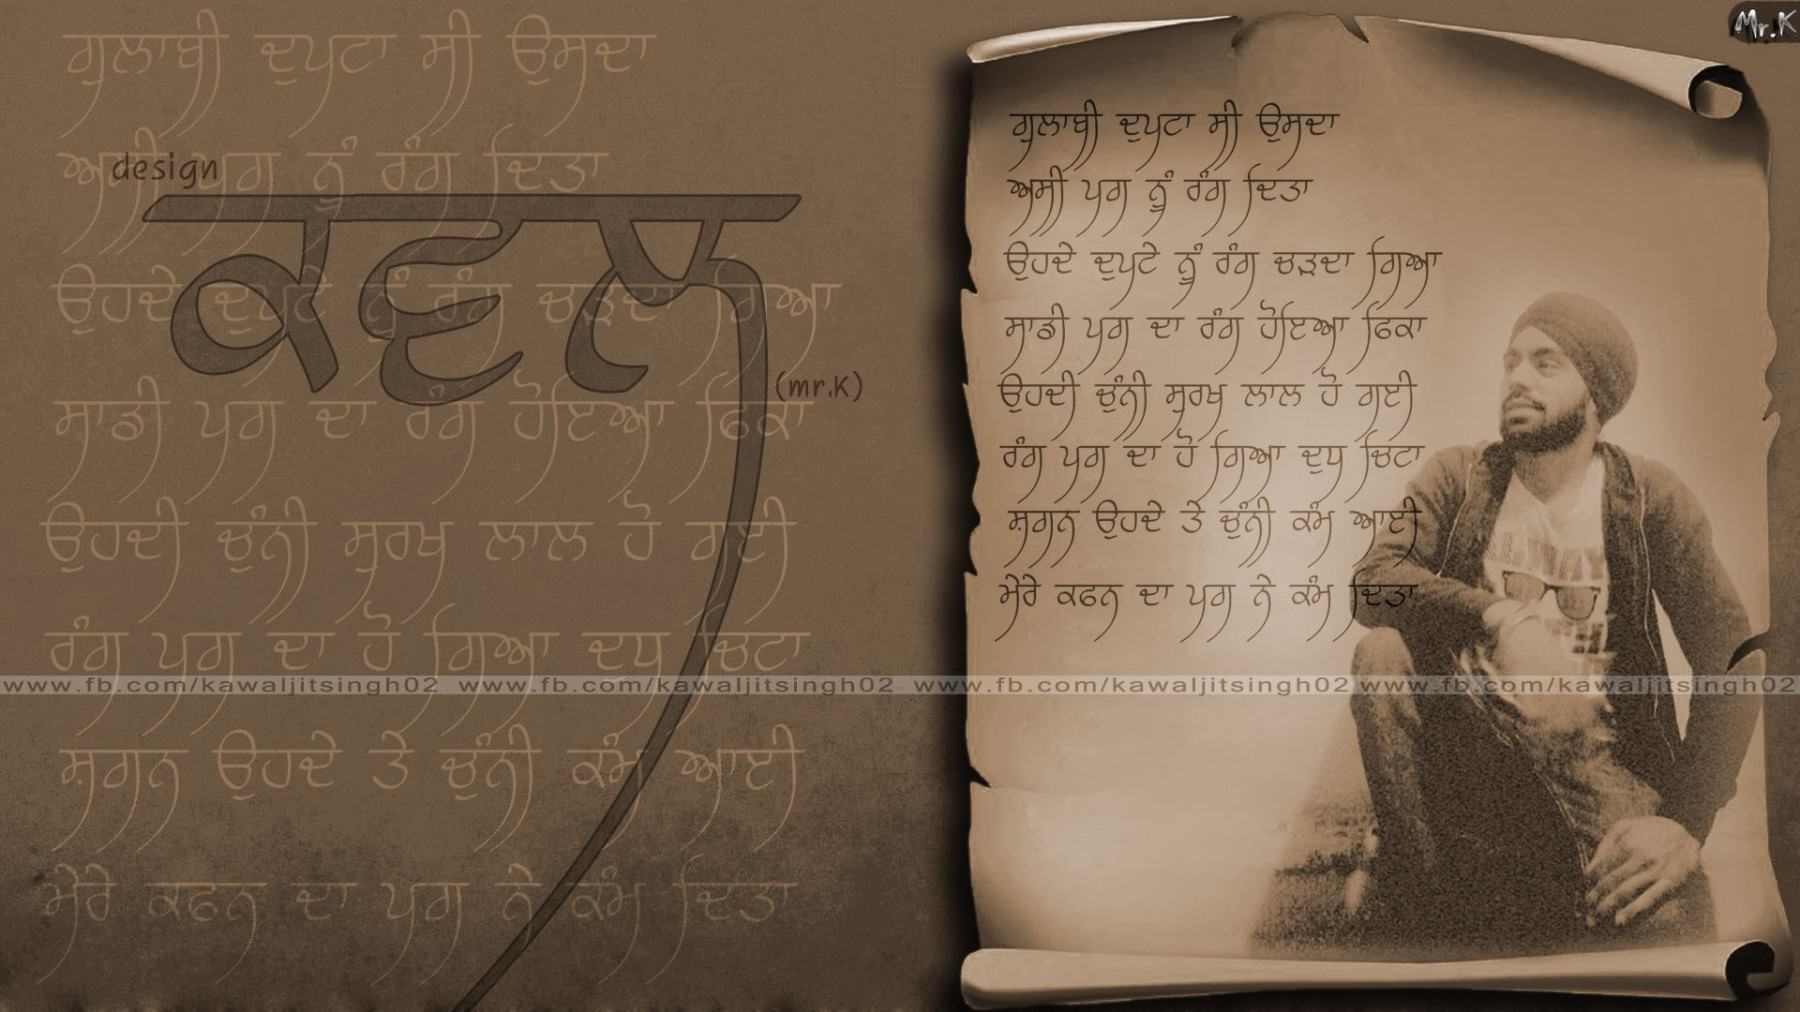 ਗੁਲਾਬੀ ਦੁਪਟਾ ਸੀ ਉਸਦਾ
ਅਸੀ ਪਗ ਨੂੰ ਰੰਗ ਦਿਤਾ
ਉਹਦੇ ਦੁਪਟੇ ਨੂੰ ਰੰਗ ਚੜਦਾ ਗਿਆ
ਸਾਡੀ ਪਗ ਦਾ ਰੰਗ ਹੋਇਆ ਫਿਕਾ
ਉਹਦੀ ਚੁੰਨੀ ਸੁਰਖ ਲਾਲ ਹੋ ਗਈ
ਰੰਗ ਪਗ ਦਾ ਹੋ ਗਿਆ ਦੁਧ ਚਿਟਾ
ਸ਼ਗਨ ਉਹਦੇ ਤੇ ਚੁੰਨੀ ਕੰਮ ਆਈ
ਮੇਰੇ ਕਫਨ ਦਾ ਪਗ ਨੇ ਕੰਮ ਦਿਤਾ
design
ਕਵਲ
(mr.K)
Mr.K
ਗੁਲਾਬੀ ਦੁਪਟਾ ਸੀ ਉਸਦਾ
ਅਸੀ ਪਗ ਨੂੰ ਰੰਗ ਦਿਤਾ
ਉਹਦੇ ਦੁਪਟੇ ਨੂੰ ਰੰਗ ਚੜਦਾ ਗਿਆ
ਸਾਡੀ ਪਗ ਦਾ ਰੰਗ ਹੋਇਆ ਫਿਕਾ
ਉਹਦੀ ਚੁੰਨੀ ਸੁਰਖ ਲਾਲ ਹੋ ਗਈ
ਰੰਗ ਪਗ ਦਾ ਹੋ ਗਿਆ ਦੁਧ ਚਿਟਾ
ਸ਼ਗਨ ਉਹਦੇ ਤੇ ਚੁੰਨੀ ਕੰਮ ਆਈ
ਮੇਰੇ ਕਫਨ ਦਾ ਪਗ ਨੇ ਕੰਮ ਦਿਤਾ
www.fb.com/kawaljitsingh02 www.fb.com/kawaljitsingh02 www.fb.com/kawaljitsingh02 www.fb.com/kawaljitsingh02